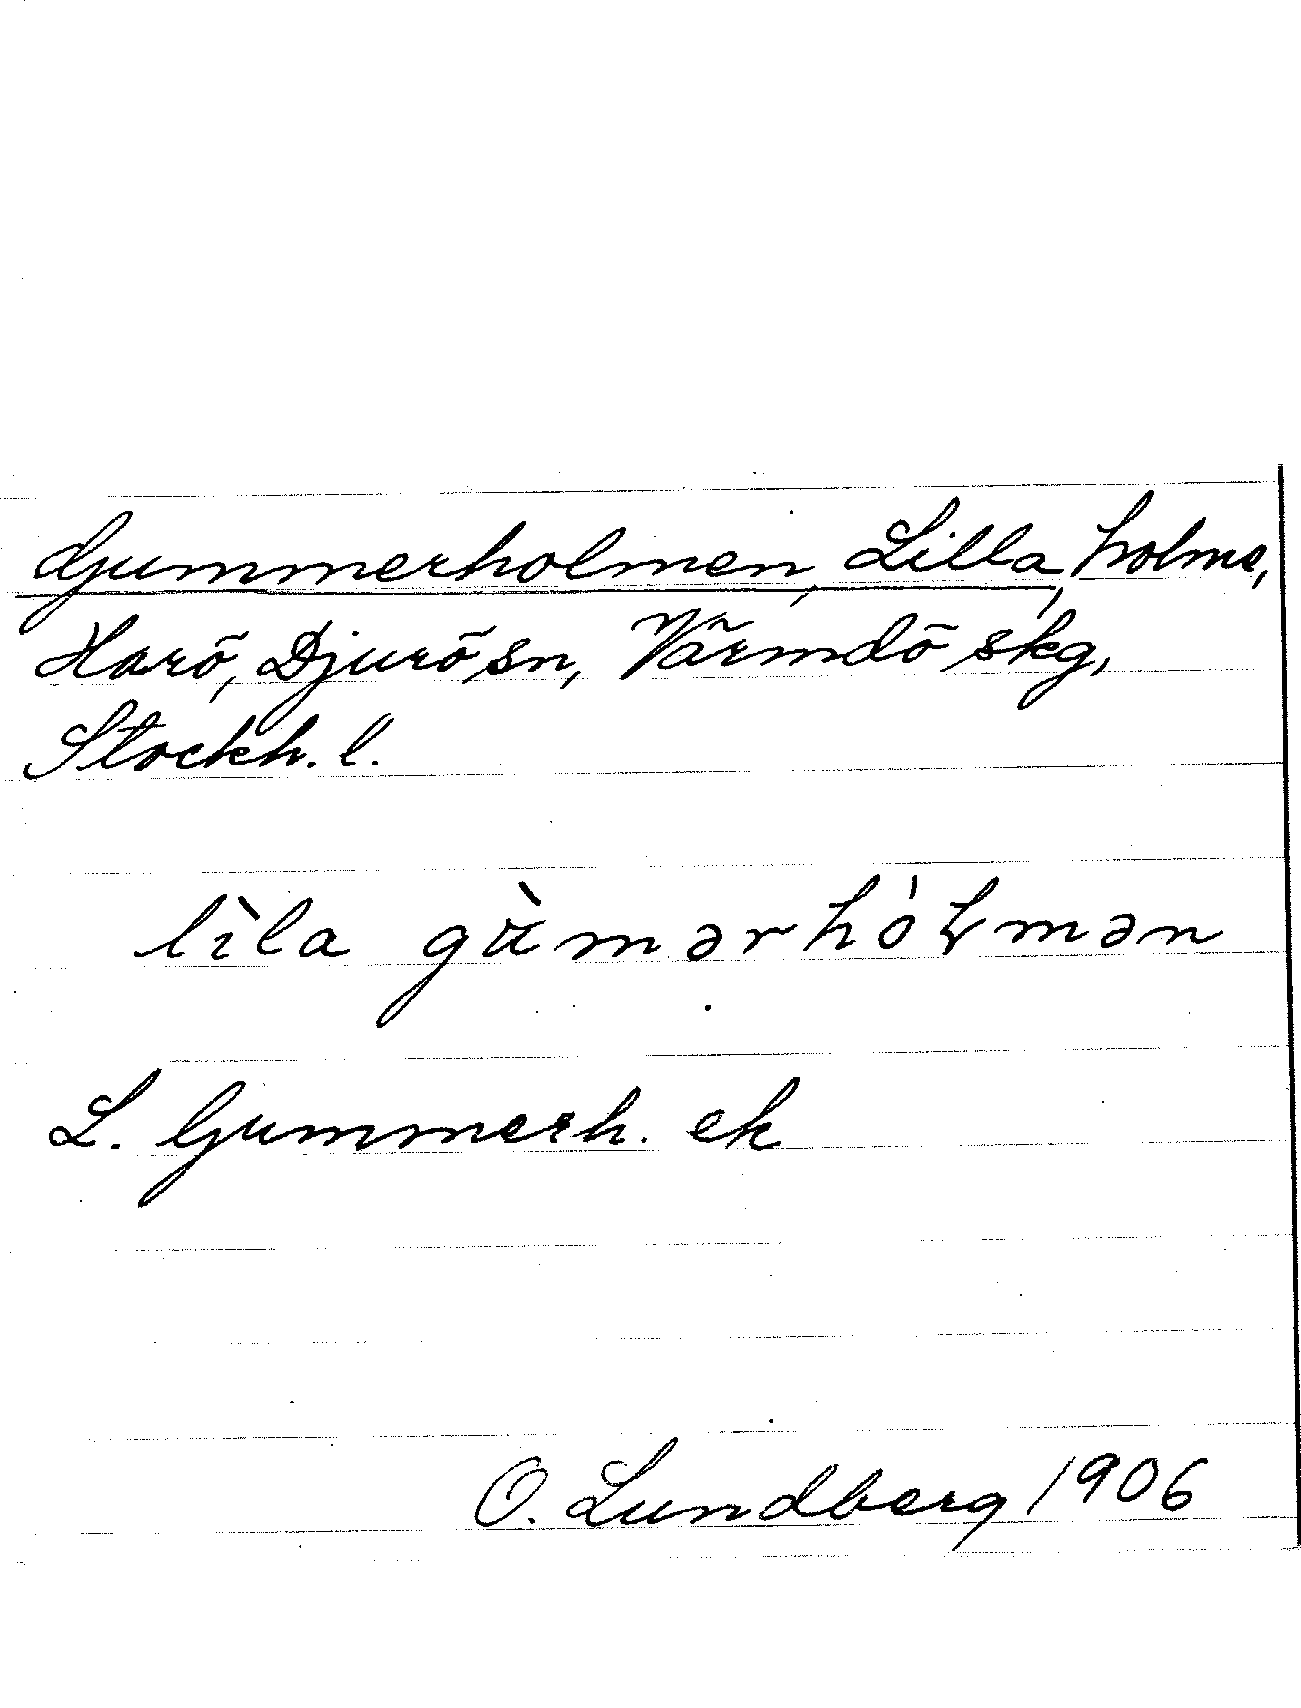 Gummerholmen, Lilla, holme,
Harö, Djurö sn, Värmdö skg,
Stockh. l.
lìla gàmərhóɫmən
L. Gummerh. ek
O. Lundberg 1906